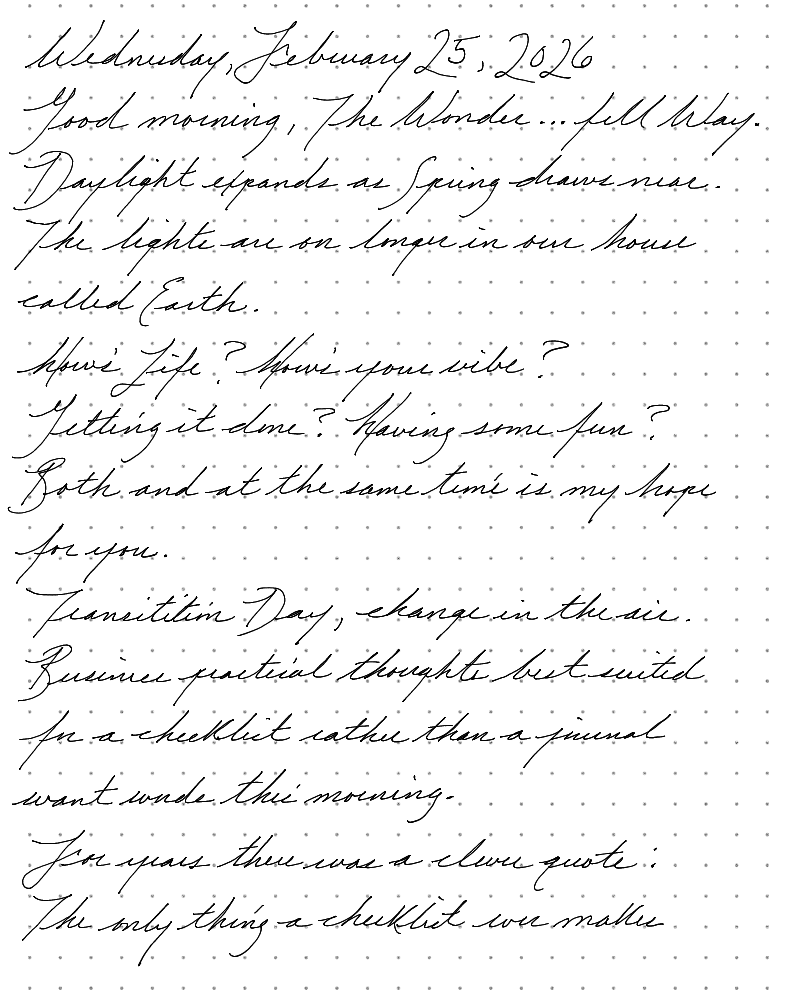 Wednesday, February 25, 2026
Good morning, The Wonder... fell Way.
Daylight expands as Spring draws near.
The lights are on longer in our house
called Earth.
How's Life? How's your vibe?
Getting it done? Having some fun?
Both and at the same time is my hope
for you.
Transitition Day, change in the air.
Business practical thoughts best suited
for a checklist rather than a journal
want words this morning.
For years there was a clever quote:
The only thing a checklist ever makes